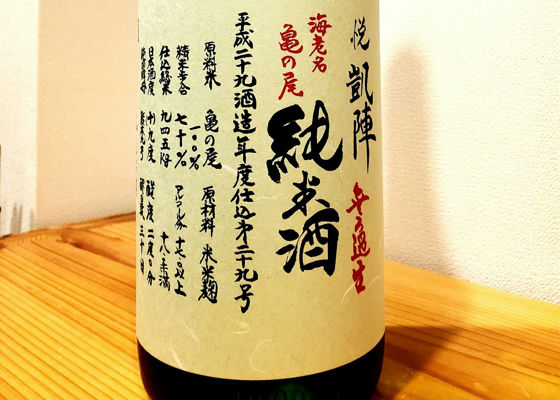 悦 凱陣 無ろ過生
海老名
亀の尾
純米酒
平成二十九酒造年度仕込第二十九号
原料米 亀の尾 一〇〇% 原材料 米米麹
精米歩合 七十% アルコール分 十七以上
仕込総米 九四五kg 十八未満
日本酒度 十九度 酸度 二度〇分